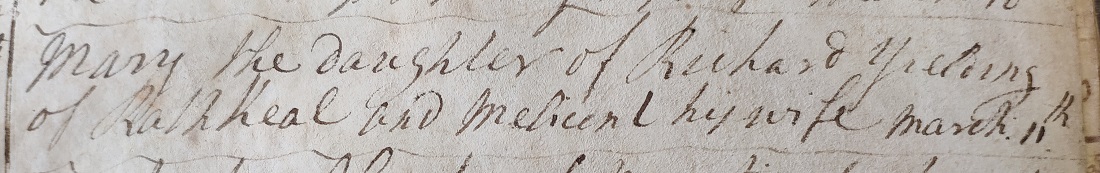 Mary the daughter of Richard Yielding
of Rathkeal and Melicent his wife march. 11th